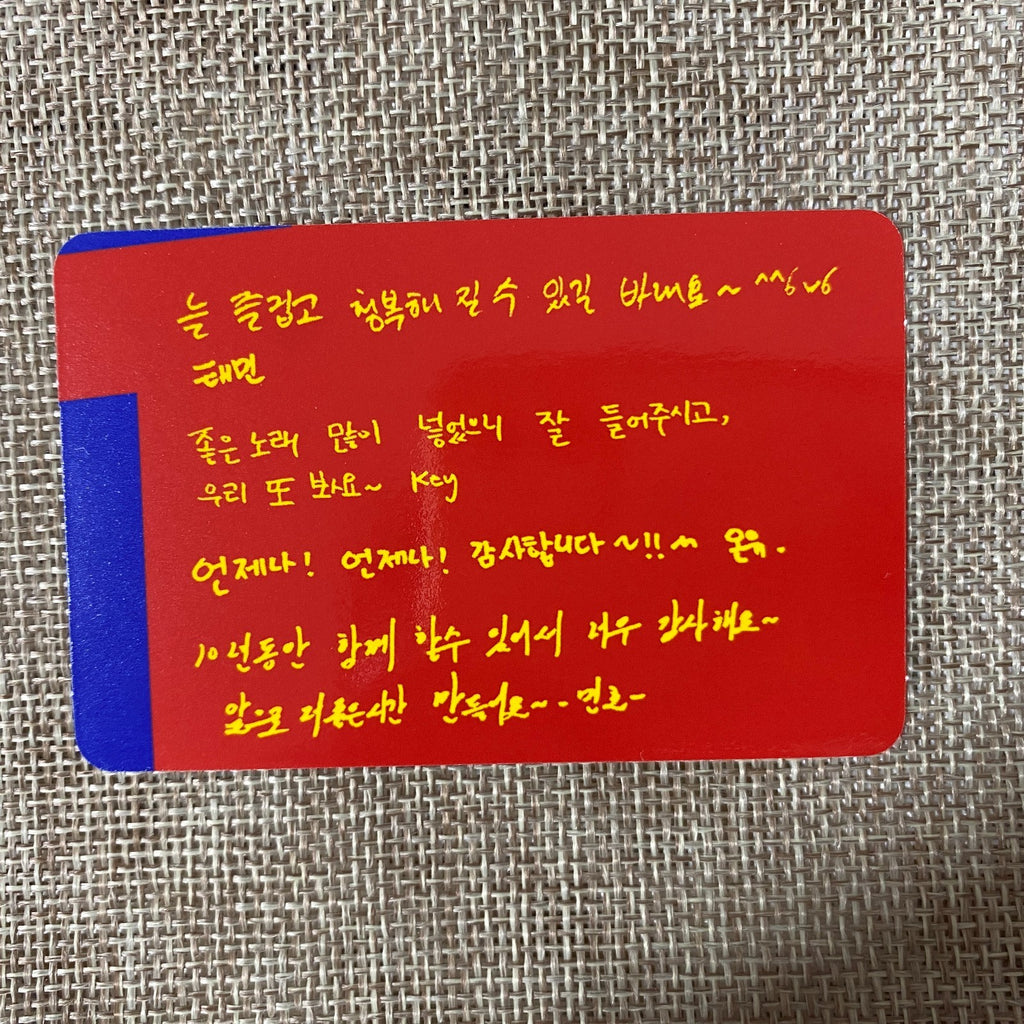 늘 즐겁고 행복해 질 수 있길 바래요~
태민
좋은 노래 많이 넣었으니 잘 들어주시고,
우리 또 봐요~ Key
언제나! 언제나! 감사합니다~!!^^ 온유.
10년동안 함께 할수 있어서 너무 감사해요~
앞으로 더좋은시간 만들어요~- 민호-